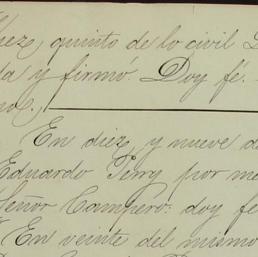 quinto de lo civil
y firmó Doy fé.
En diez y nueve de
Eduardo Perry por me
Señor Campero: doy fe
En veinte del mismo